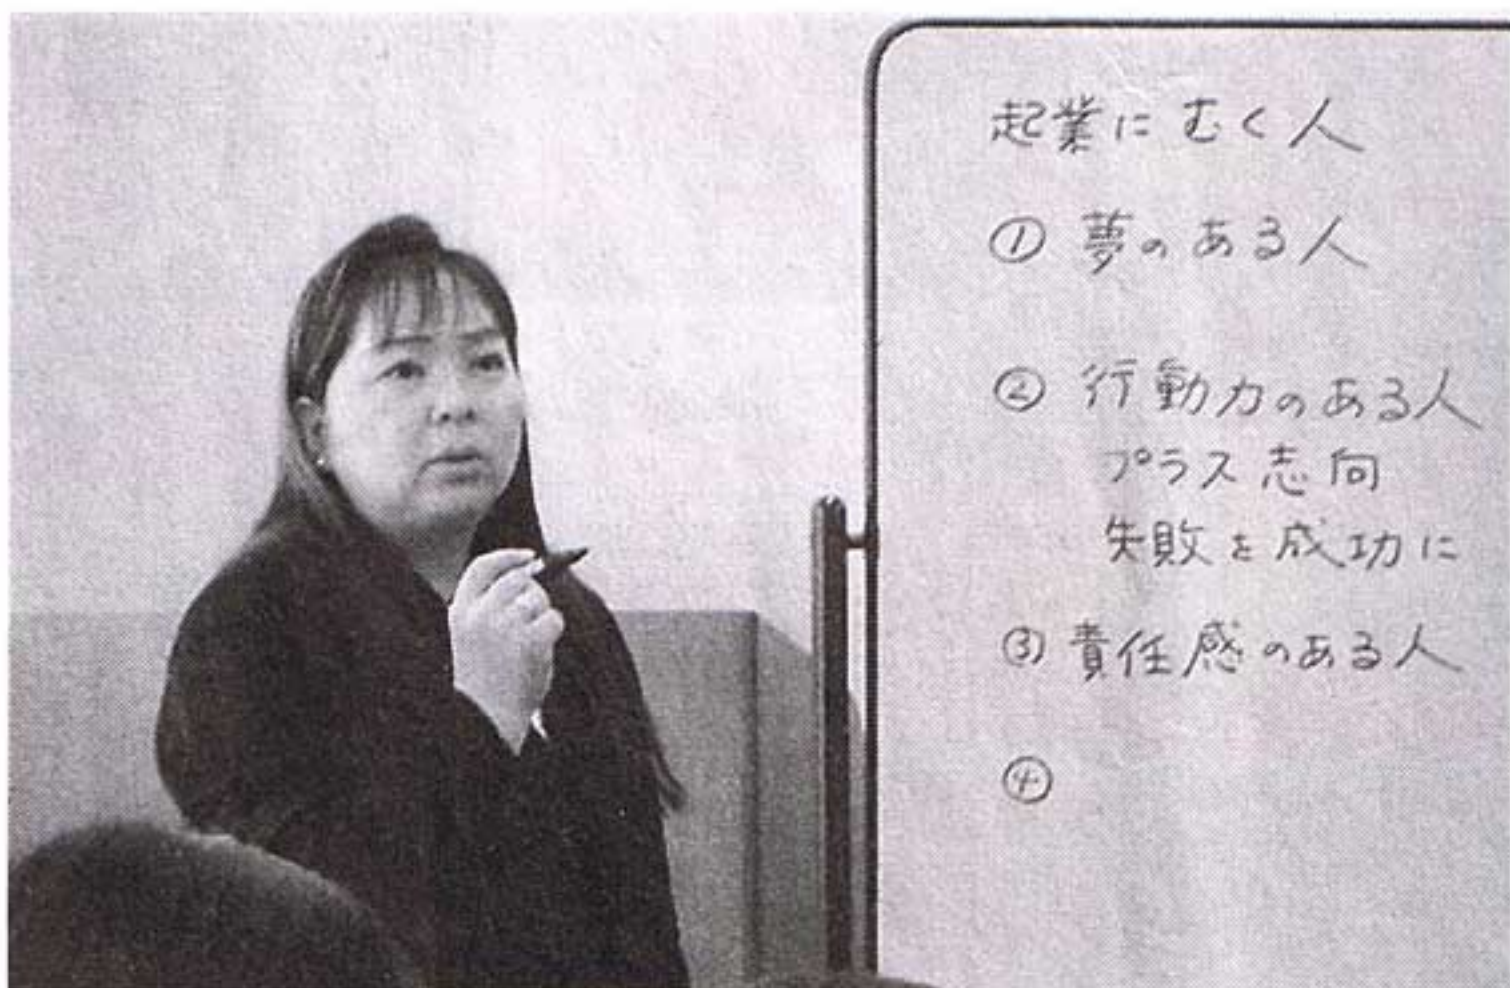 起業にむく人
① 夢のある人
② 行動力のある人
プラス志向
失敗を成功に
③ 責任感のある人
④